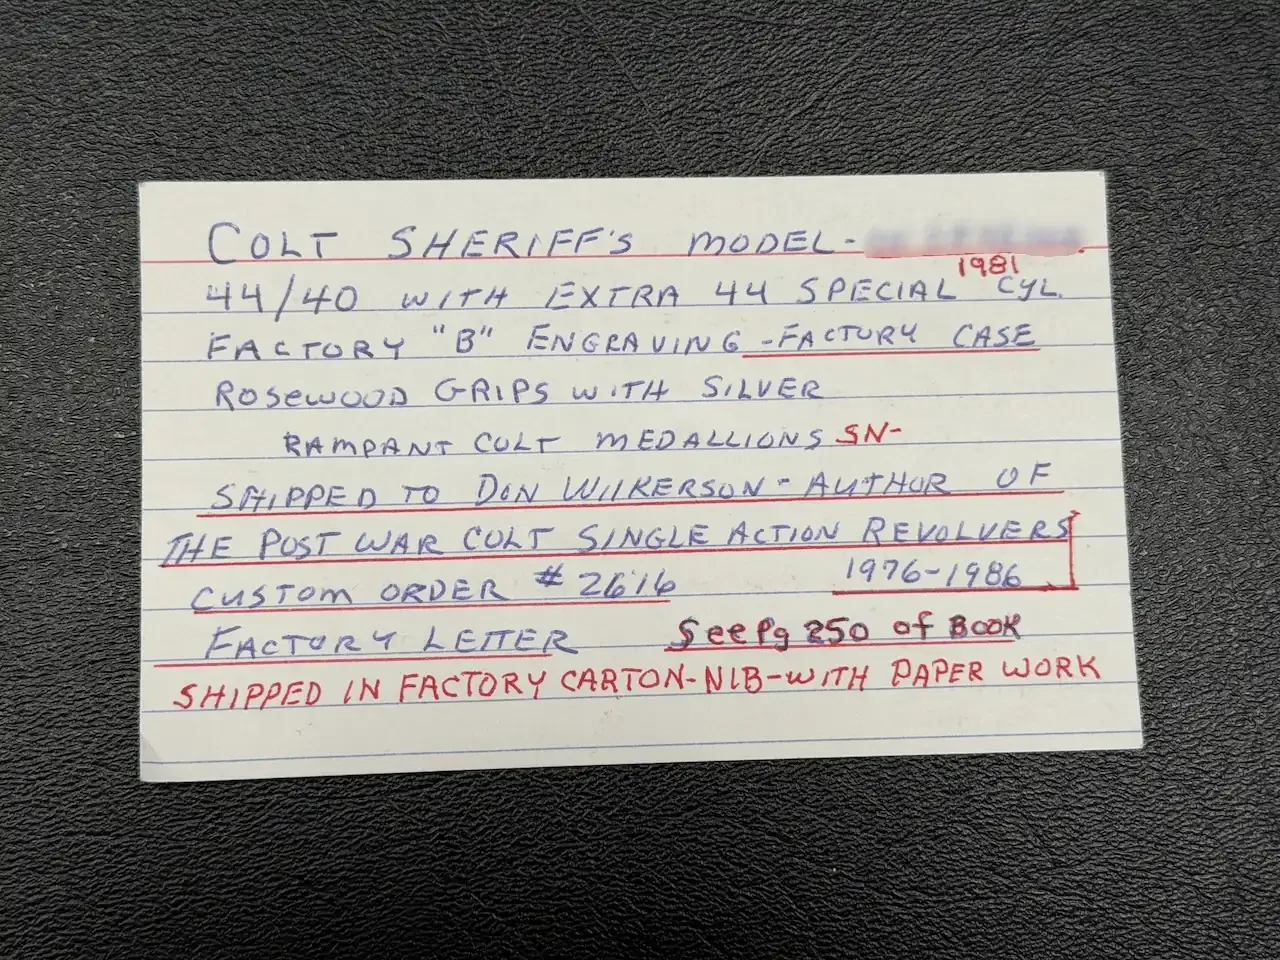 COLT SHERIFF'S MODEL-
1981
44/40 WITH EXTRA 44 SPECIAL CYL.
FACTORY "B" ENGRAVING -FACTORY CASE
ROSEWOOD GRIPS WITH SILVER
RAMPANT COLT MEDALLIONS SN-
SHIPPED TO DON WILKERSON - AUTHOR OF
THE POST WAR COLT SINGLE ACTION REVOLVERS
CUSTOM ORDER # 2616 1976-1986
FACTORY LETTER See Pg 250 of BOOK
SHIPPED IN FACTORY CARTON-NIB-WITH PAPER WORK